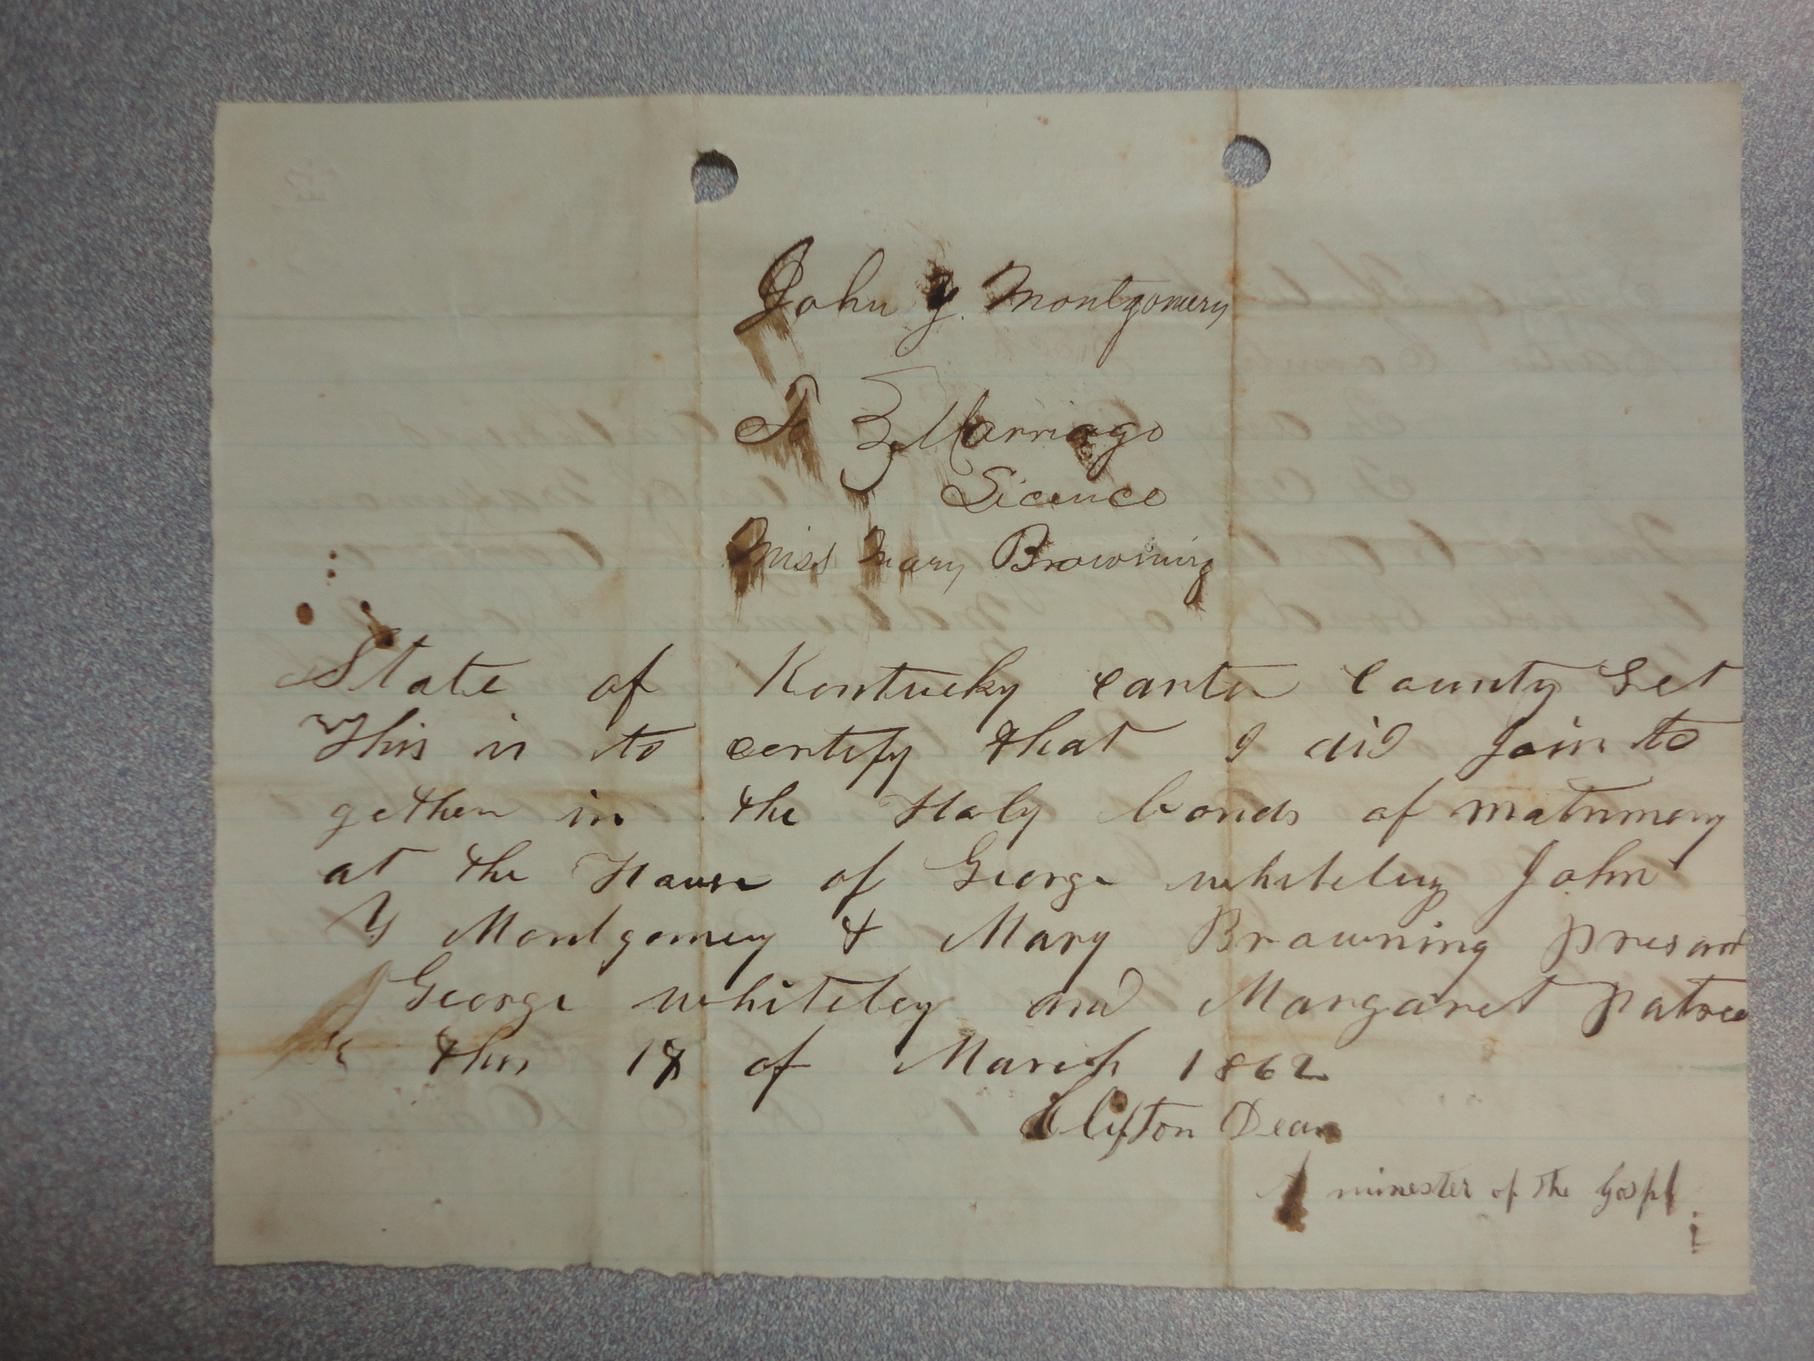 John Y. Montgomery
To } Marriage
Licence
Miss Mary Browning
State of Kentucky Carter County Sct
This is to certify that I did join to
gether in the Holy bonds of matrimony
at the House of George whiteley John
Y Montgomery & Mary Browning presant
George whiteley and Margaret
this 17 of March 1862
Clifton Dean
A minester of the Gospl